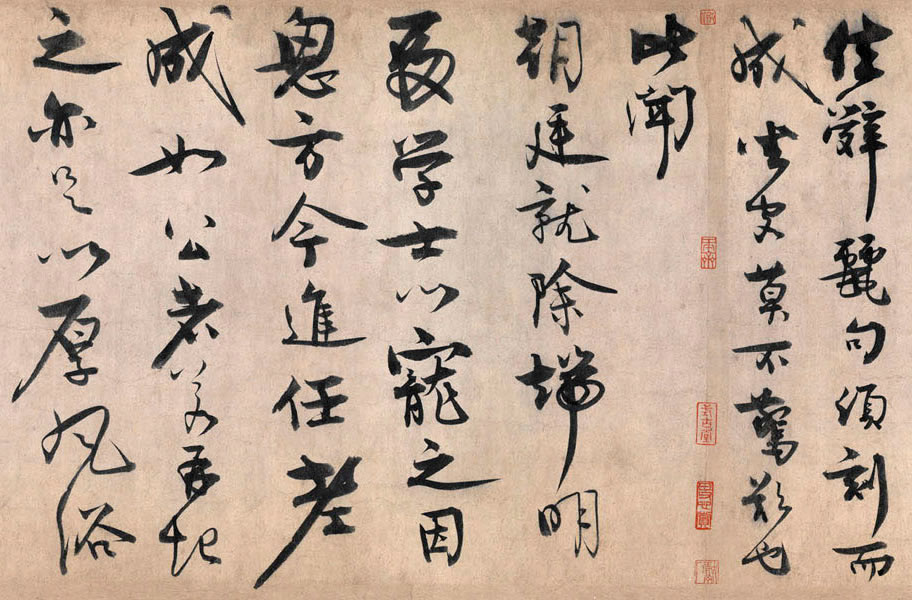 佳辭麗句須刻而
成坐客莫不驚歎也
比聞
朝廷就除端明
殿学士以寵之因
思方今進任老
成如公者若再起
之亦足以厚風俗